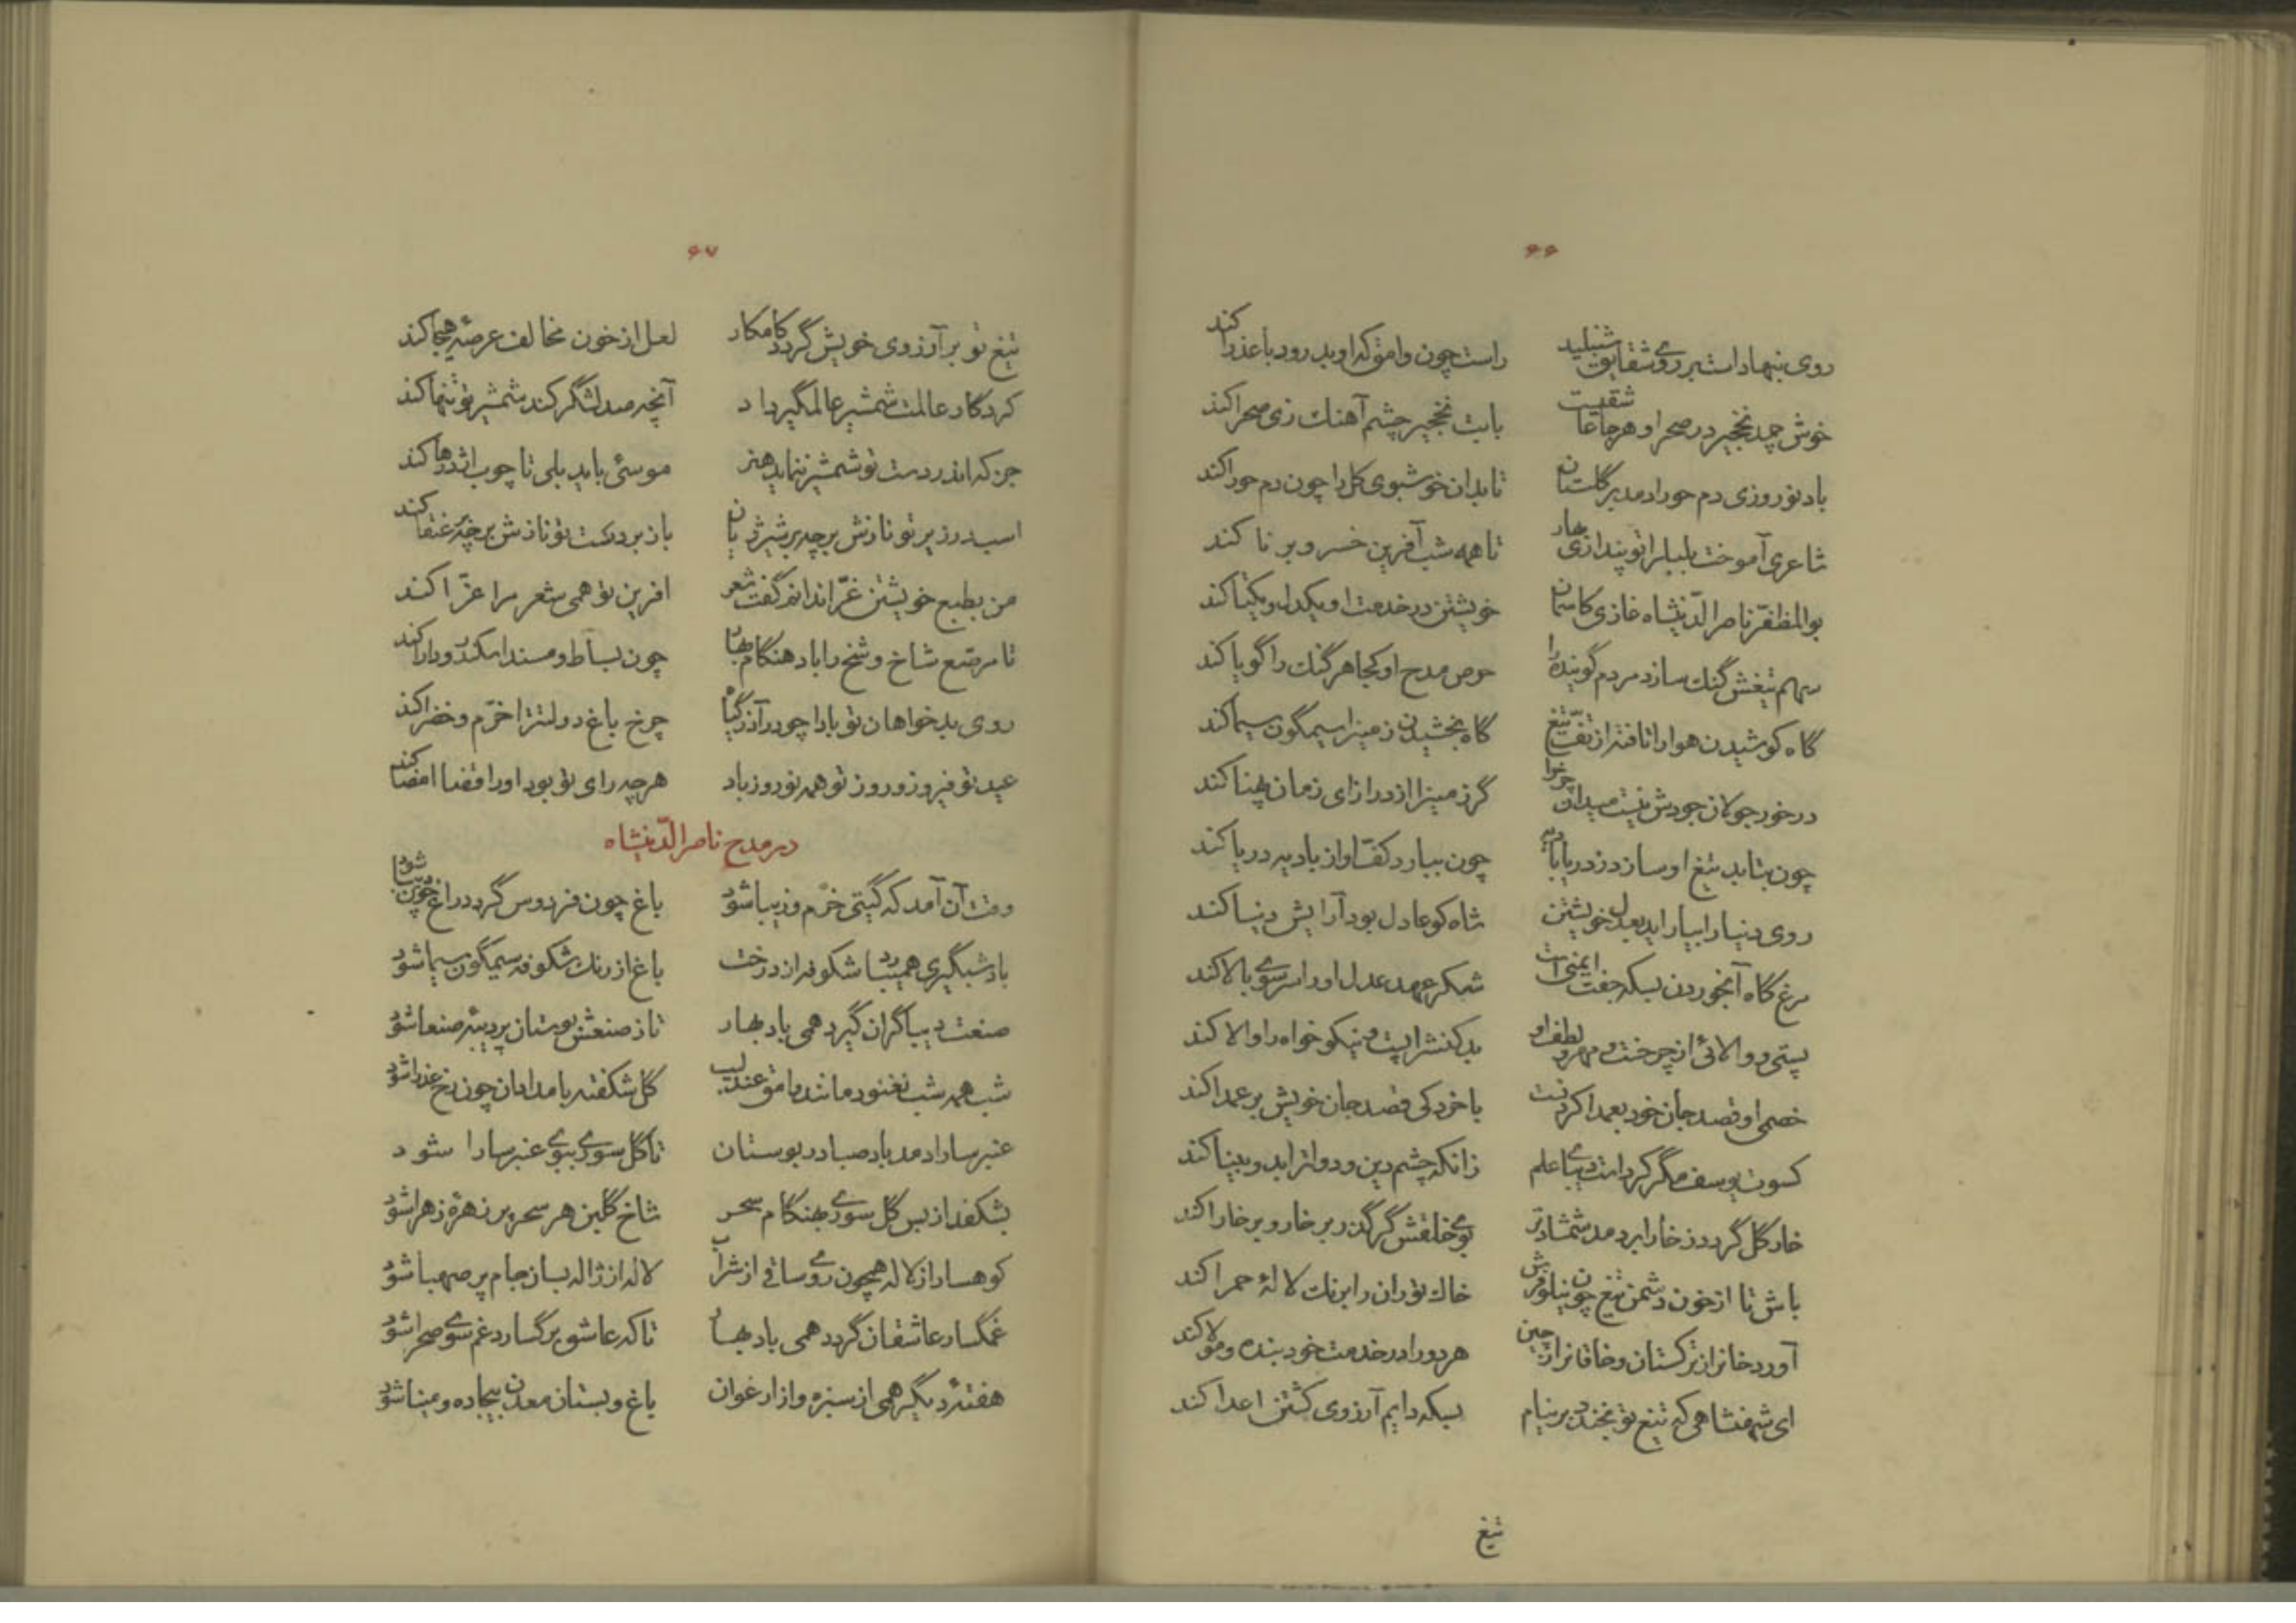 ۶۶
روی بنهاد است بر روی شقایق شنبلید راست چون وامق که او بدرود با عذرا کند
خوش چمد نخجیر در صحرا و هر جا عاشقیست بابت نخجیر چشم آهنك زی صحرا کند
باد نوروزی دم حورا دمد بر گلستان تا بدان خوشبوی گل را چون دم حورا کند
شاعری آموخت بلبل را تو پنداری بهار تا همه شب آفرین خسرو برنا کند
بوالمظفر ناصر الدینشاه غازی کاسمان خویشتن در خدمت او یکدل و یکتا کند
سهم تیغش گنك سازد مردم گوینده را حرص مدح او کجا هر گنك را گویا کند
گاه کوشیدن هوا را تافته از تف تیغ گاه بخشیدن زمین را سیمگون سیما کند
در خور جولان جودش نیست میدان چرا گر زمین را از درازای زمان پهنا کند
چون بتابد تیغ او سازد ز دریا بادیه چون ببارد کف او از بادیه دریا کند
روی دنیا را بیاراید بعدل خویشتن شاه کو عادل بود آرایش دنیا کند
مرغ گاه آبخوردن بسکه جفت ایمنی است شکر عهد عدل او را سر سوی بالا کند
پستی و والائی از چرخست و مهر و لطف او بدکنش را پست و نیکوخواه را والا کند
خصم او قصد جان خود بعمدا کرد نیست با خرد کی قصد جان خویش بر عمدا کند
کسوت یوسف مگر کرد است دیبای علم زانکه چشم دین و دولت زاید و بینا کند
خار گل گردد ز خارا بر دمد شمشاد تر بوی خلقش گر گذر بر خار و بر خارا کند
باش تا از خون دشمن تیغ چون نیلوفرش خاك توران را برنك لالهٔ حمرا کند
آورد خان از ترکستان و خاقان از چین هر دو را در خدمت خود بنده و مولا کند
ای شهنشاهی که تیغ تو نخندد بر نیام بسکه دایم آرزوی کشتن اعدا کند
تیغ
۶۷
تیغ تو بر آرزوی خویش گردد کامکار لعل از خون مخالف عرصهٔ هیجا کند
کردگار عالمت شمشیر عالمگیر داد آنچه صد لشگر کند شمشیر تو تنها کند
جز که اندر دست تو شمشیر ننماید هنر موسئی باید بلی تا چوب اژدرها کند
اسب در زیر تو نازش بر چه بر شیر ژیان باز بر دست تو نازش بر چه بر عنقا کند
من بطبع خویشتن غرا ندانم گفت شعر افرین تو همی شعر مرا غرّا کند
تا مرصع شاخ و شخ را باد هنگام بهار چون بساط و مسند اسکندر و دارا کند
روی بدخواهان تو بادا چو در آذر گیاه چرخ باغ دولتت را خرّم و خضرا کند
عید تو فیروز و روز تو همه نوروز باد هر چه رای تو بود او را قضا امضا کند
در مدح ناصر الدّینشاه
وقت آن آمد که گیتی خرّم و زیبا شود باغ چون فردوس گردد راغ چون دیبا شود
باد شبگیری همی رباید شکوفه از درخت باغ از رنك شکوفه سیمگون سیما شود
صنعت دیباگران گیرد همی باد بهار تا ز صنعتش بوستان پر دیبه صنعا شود
شب همه شب نغنود مانند وامق عندلیب گل شکفته بامدادان چون رخ عذرا شود
عنبر سارا دمد باد صبا در بوستان تا گل سوری ببوی عنبر سارا شود
بشکفد از بس گل سوری بهنگام سحر شاخ گلبن هر سحر پر زهرهٔ زهرا شود
کوهسار از لاله همچون روی ساقی از شراب لاله از ژاله بسان جام پر صهبا شود
غمگسار عاشقان گردد همی باد بهار تا که عاشق برگسارد غم سوی صحرا شود
هفتهٔ دیگر همی از سبزه و از ارغوان باغ و بستان معدن بیجاده و مینا شود